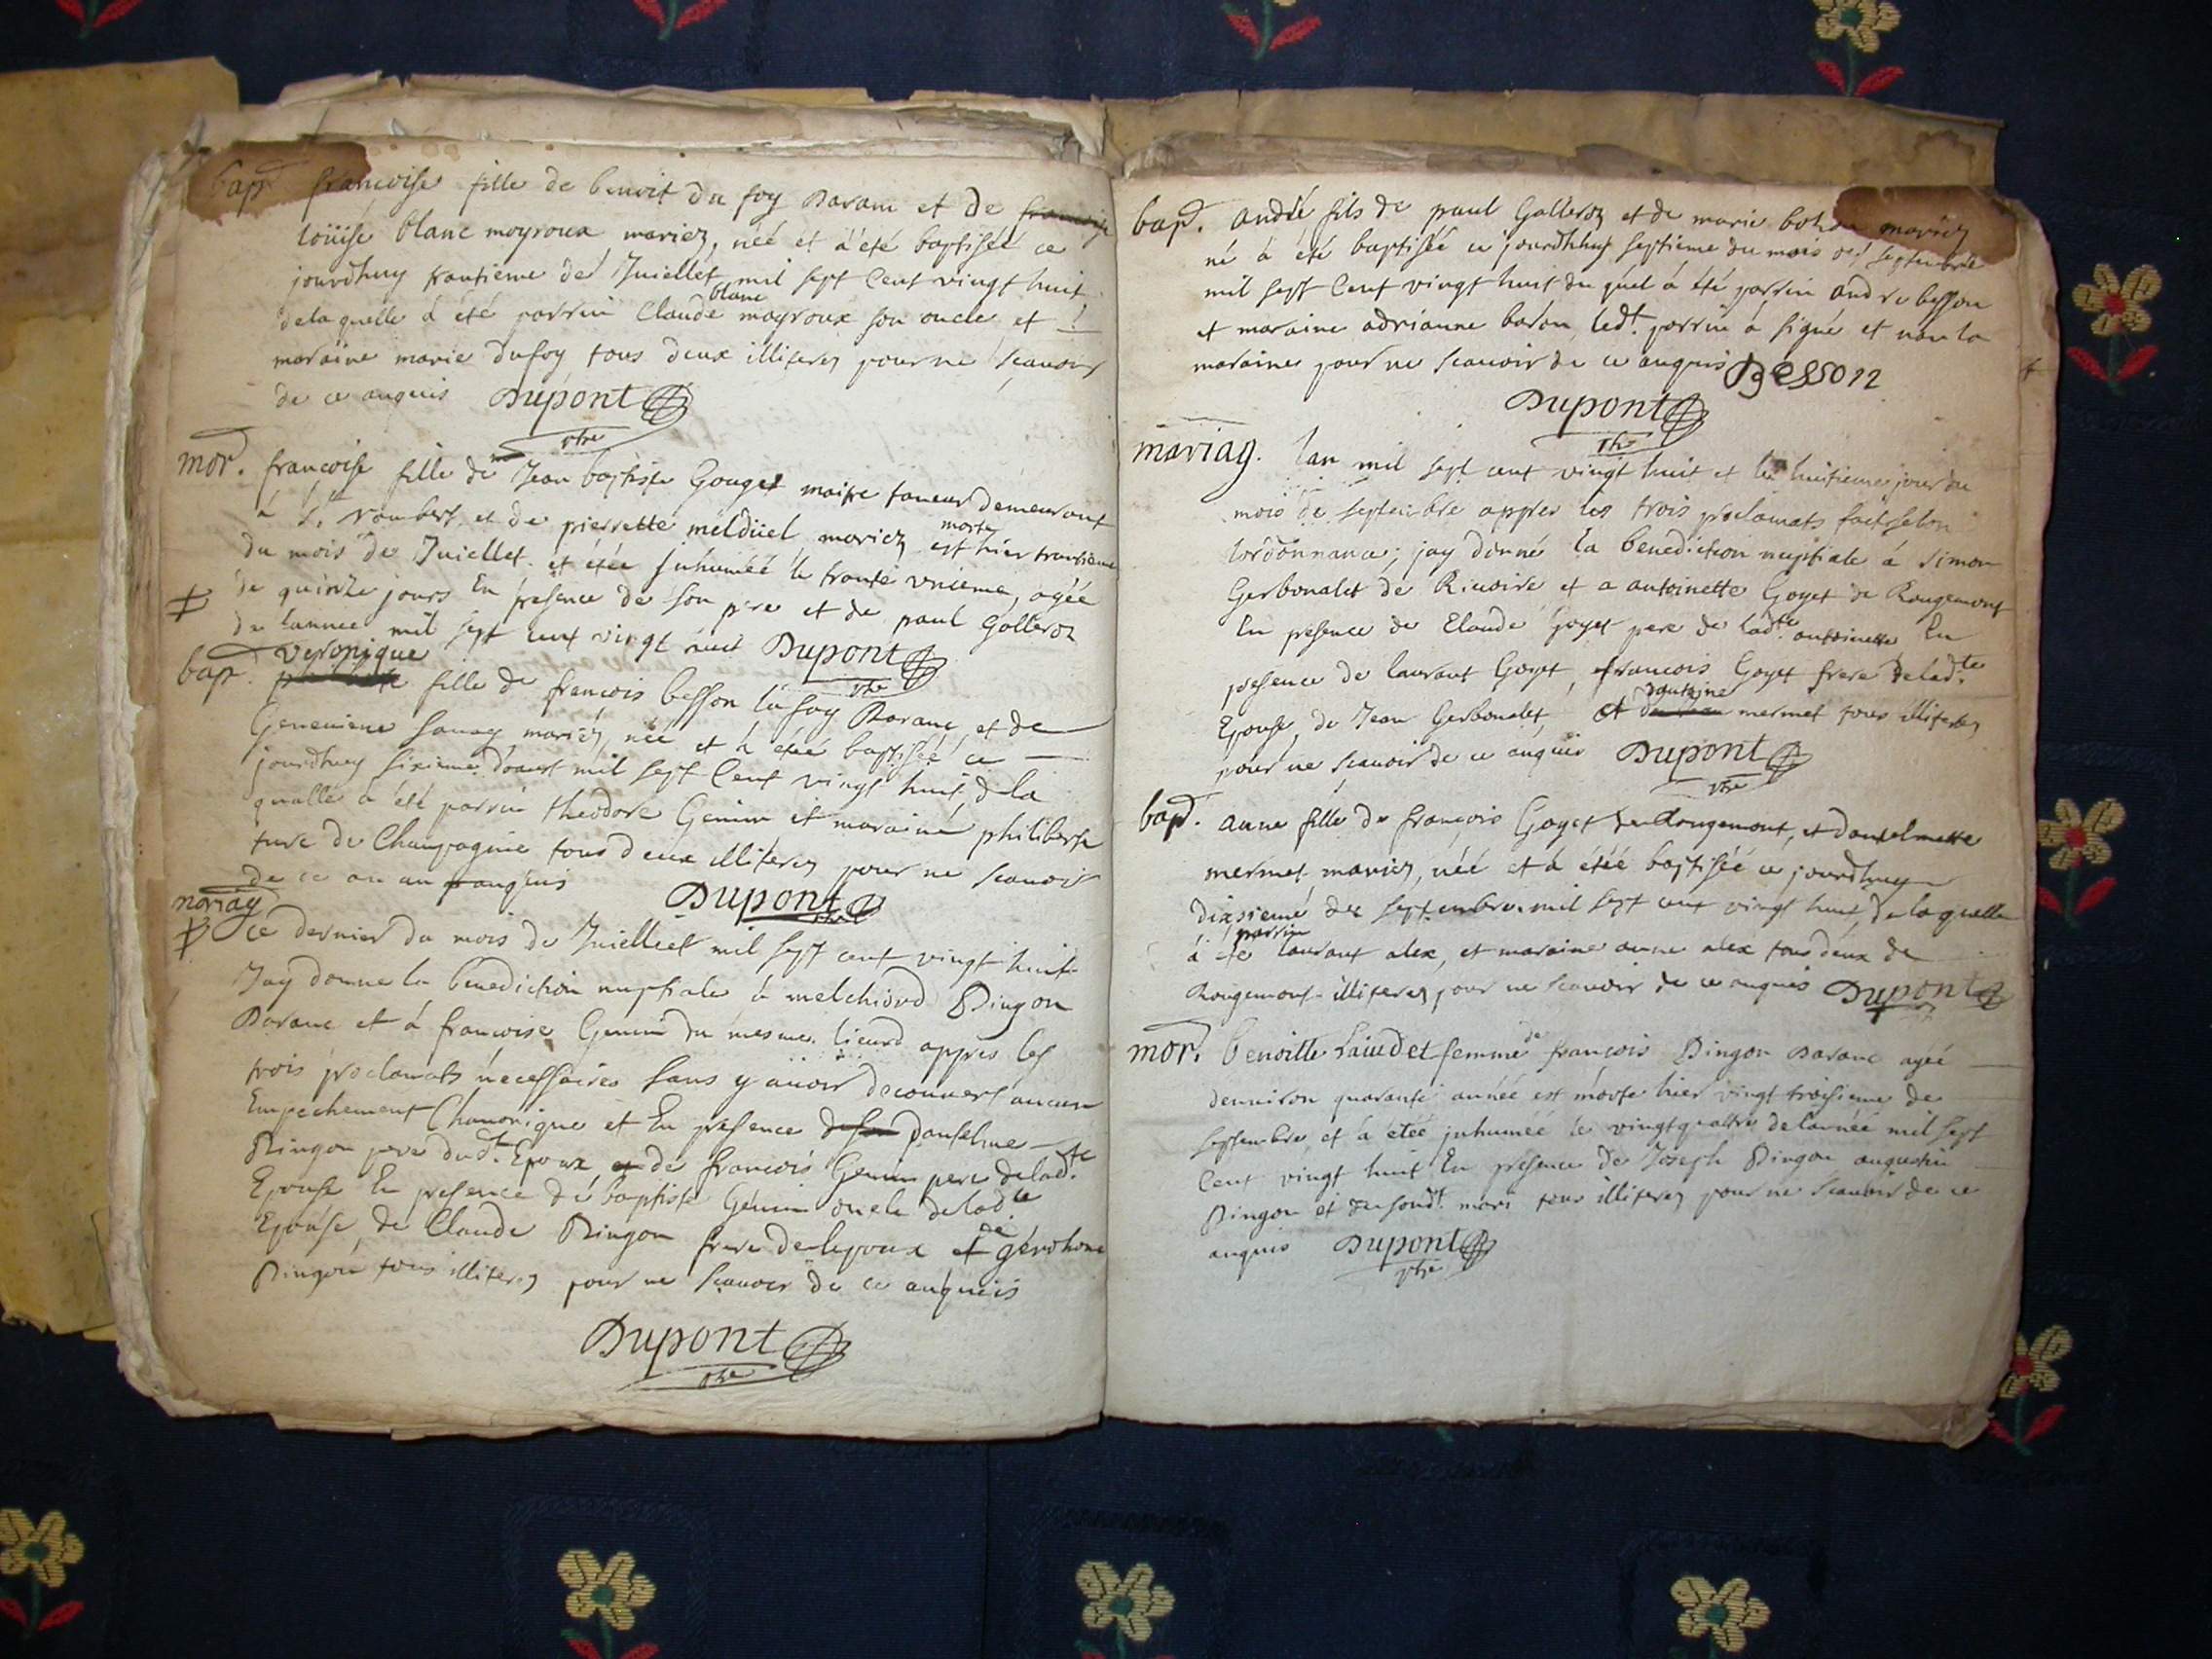 bap. francoise fille de benoit du foy Daranc et de francoise
loüise blanc moyroux mariez, néé et à été baptiséé ce
jourdhuy trantieme de Juiellet mil sept Cent vingt huit
blanc
de la quelle à été parrin Claude moyroux son oncle et
maraine marie dufoy tous deux illiterez pour ne scauoir
de ce anquis Dupont
ptre
mor. francoise fille de Jean baptiste Gouget maitre taneur demeurant
morte
à St. rambert et de pierrette meldüel mariez est hier trantieme
du mois de Juiellet et étée Inhuméé le trante vnieme, agée
de quinze jours En presence de son pere et de paul Golleron
de lannee mil sept cent vingt huit Dupont
ptre
veronique
bap. fille de francois besson du foy Daranc et de
Geneuieue sauag mariez, néé et à étéé baptiséé ce
jourdhuy sixieme daoust mil sept Cent vingt huit, de la
quelle à été parrin theodore Genin et maraine philiberte
ture de Champagnie tous deux illiterez pour ne scauoir
de ce anquis Dupont
ptre
mariag
Ce dernier du mois de Juielliet mil sept cent vingt huit
Jay donne la benediction nuptiale à melchiord Dingon
Daranc et à francoise Genin du mesme lieurd appres les
trois proclamats necessaires sans y auoir decouuert aucun
Empechement Chanonique et En presence danselme
Dingon pere dudt. Epoux et de francois Genin pere de ladte
Epouse En presence de baptiste Genin oncle de ladte
de
Epouse, de Claude Dingon frere de lepoux et gérohme
Dingon tous illiterez pour ne scauoir de ce anquis
Dupont
ptre
bap. andré fils de paul Golleron et de marie mariez
né à été baptiséé ce jourdhhuy septieme du mois de septembre
mil sept Cent vingt huit du quel à été parrin andre besson
et maraine adrianne baron, ledt. parrin à signé et non la
maraine pour ne scauoir de ce anquis Besson
Dupont
ptre
mariag. lan mil sept cent vingt huit et le huitieme jour du
mois de septembre appres les trois proclamats fait selon
lordonnance; jay donné la benediction nuptiale à simon
Gerbonalet de Ricoire et a antoinette Goyet de Rougemont
En presence de Claude Goyet pere de ladte antoinette En
presence de laurant Goyet, francois Goyet frere de ladte.
dantoine
Epouse, de Jean Gerbonalet, et mermet tous illiterez
pour ne scauoir de ce anquis Dupont
ptre
bap. anne fille de francois Goyet de Rougemont, et dantelmette
mermet mariez, néé et à étéé baptiséé ce jourdhuy
dixsieme de septembre mil sept cent vingt huit, de la quelle
parrin
à été laurant alex, et maraine anne alex tous deux de
Rougemont illiterez pour ne scauoir de ce anquis Dupont
de
mor. benoitte femme francois Dingon Daranc agéé
denuiron quarante année est morte hier vingt troisieme de
septembre et à étée inhuméé le vingtquattre de lannéé mil sept
Cent vingt huit En presence de Joseph Dingon augustin
Dingon et du soudt. mari tous illiterez pour ne scauoir de ce
anquis Dupont
ptre